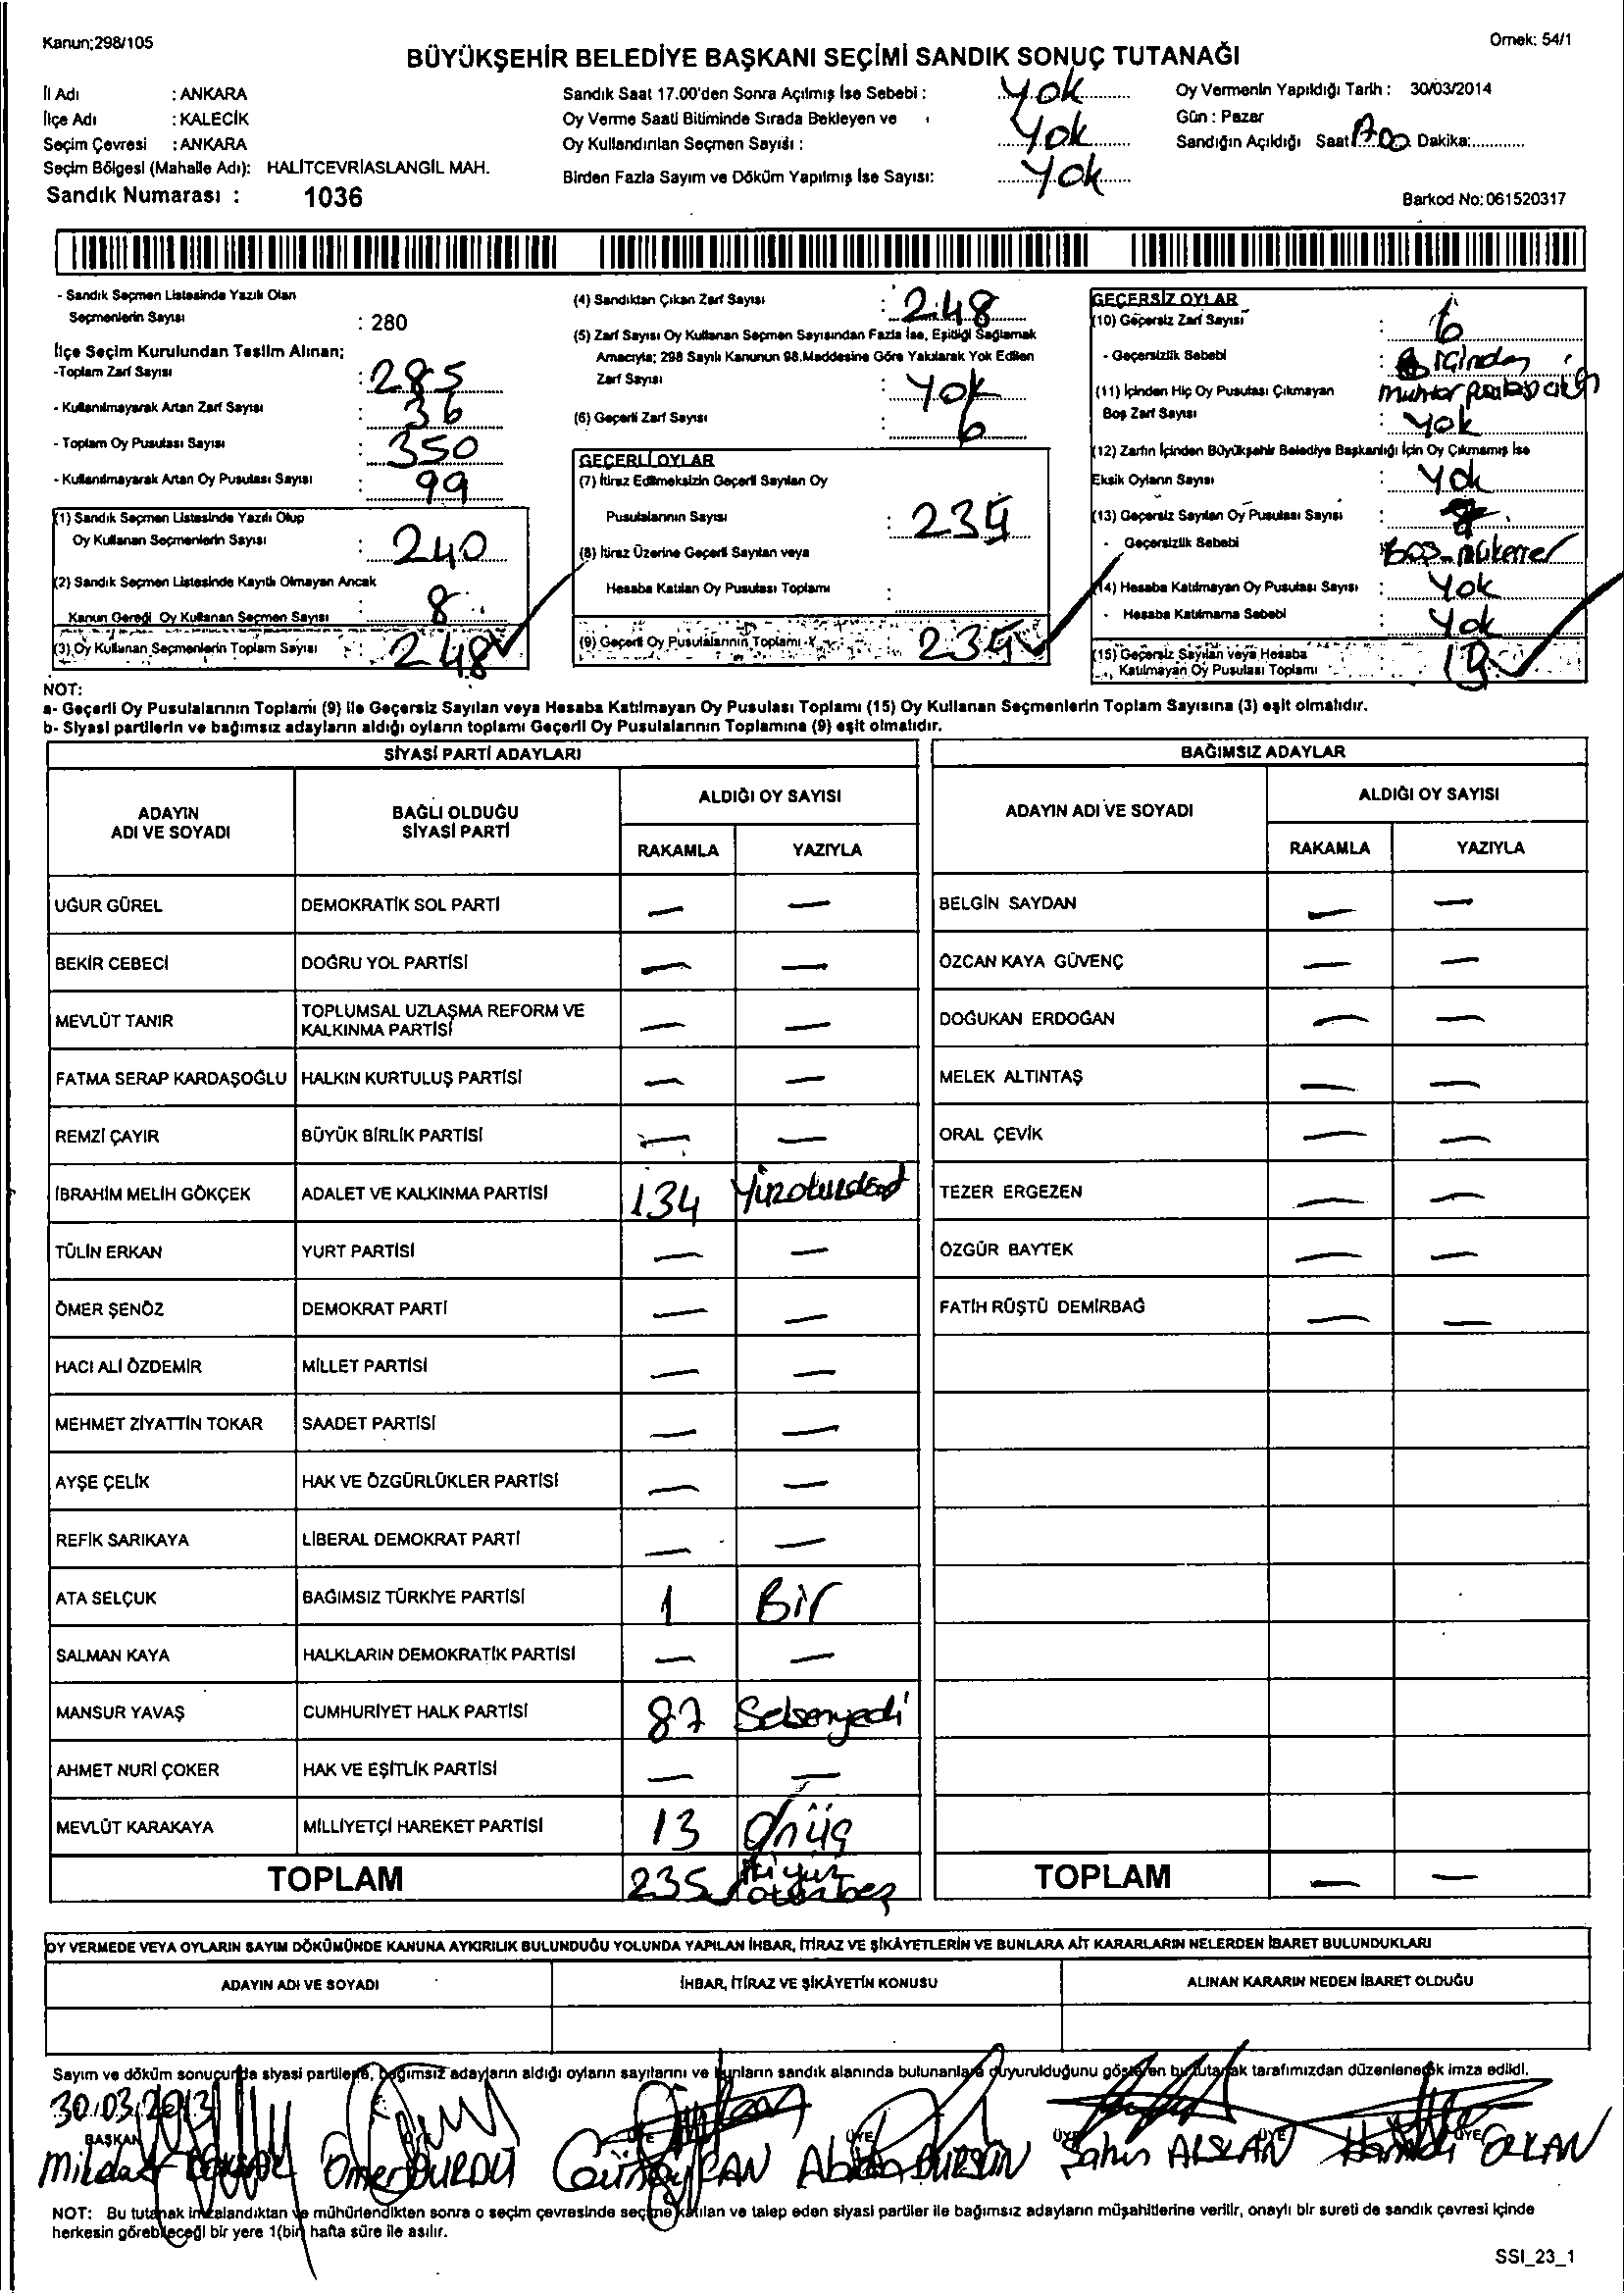 Kanun;298/105
Örnek: 54/1
BÜYÜKŞEHİR BELEDİYE BAŞKANI SEÇİMİ SANDIK SONUÇ TUTANAĞI
İl Adı : ANKARA
İlçe Adı : KALECİK
Seçim Çevresi : ANKARA
Seçim Bölgesi (Mahalle Adı): HALİTCEVRİASLANGİL MAH.
Sandık Numarası : 1036
Sandık Saat 17.00'den Sonra Açılmış İse Sebebi : Yok
Oy Verme Saati Bitiminde Sırada Bekleyen ve
Oy Kullandırılan Seçmen Sayısı : Yok
Birden Fazla Sayım ve Döküm Yapılmış İse Sayısı: Yok
Oy Vermenin Yapıldığı Tarih : 30/03/2014
Gün : Pazar
Sandığın Açıldığı Saat Dakika:
Barkod No:061520317
- Sandık Seçmen Listesinde Yazılı Olan
Seçmenlerin Sayısı : 280
İlçe Seçim Kurulundan Teslim Alınan;
-Toplam Zarf Sayısı : 285
- Kullanılmayarak Artan Zarf Sayısı : 36
- Toplam Oy Pusulası Sayısı : 350
- Kullanılmayarak Artan Oy Pusulası Sayısı : 99
(1) Sandık Seçmen Listesinde Yazılı Olup
Oy Kullanan Seçmenlerin Sayısı : 240
(2) Sandık Seçmen Listesinde Kayıtlı Olmayan Ancak
Kanun Gereği Oy Kullanan Seçmen Sayısı : 8
(3) Oy Kullanan Seçmenlerin Toplam Sayısı : 248
(4) Sandıktan Çıkan Zarf Sayısı : 248
(5) Zarf Sayısı Oy Kullanan Seçmen Sayısından Fazla İse, Eşitliği Sağlamak
Amacıyla; 298 Sayılı Kanunun 98.Maddesine Göre Yakılarak Yok Edilen
Zarf Sayısı : Yok
(6) Geçerli Zarf Sayısı : 6
GEÇERLİ OYLAR
(7) İtiraz Edilmeksizin Geçerli Sayılan Oy
Pusulalarının Sayısı : 235
(8) İtiraz Üzerine Geçerli Sayılan veya
Hesaba Katılan Oy Pusulası Toplamı :
(9) Geçerli Oy Pusulalarının Toplamı : 235
GEÇERSİZ OYLAR
(10) Geçersiz Zarf Sayısı : 6
- Geçersizlik Sebebi : içinden
muhtar
(11) İçinden Hiç Oy Pusulası Çıkmayan
Boş Zarf Sayısı : Yok
(12) Zarfın İçinden Büyükşehir Belediye Başkanlığı İçin Oy Çıkmamış İse
Eksik Oyların Sayısı : Yok
(13) Geçersiz Sayılan Oy Pusulası Sayısı : 7
- Geçersizlik Sebebi : Boş-mükerrer
(14) Hesaba Katılmayan Oy Pusulası Sayısı : Yok
- Hesaba Katılmama Sebebi Yok
(15) Geçersiz Sayılan veya Hesaba
Katılmayan Oy Pusulası Toplamı : 13
NOT:
a- Geçerli Oy Pusulalarının Toplamı (9) ile Geçersiz Sayılan veya Hesaba Katılmayan Oy Pusulası Toplamı (15) Oy Kullanan Seçmenlerin Toplam Sayısına (3) eşit olmalıdır.
b- Siyasi partilerin ve bağımsız adayların aldığı oyların toplamı Geçerli Oy Pusulalarının Toplamına (9) eşit olmalıdır.
SİYASİ PARTİ ADAYLARI
ADAYIN ADI VE SOYADI BAĞLI OLDUĞU SİYASİ PARTİ ALDIĞI OY SAYISI
RAKAMLA YAZIYLA
UĞUR GÜREL DEMOKRATİK SOL PARTİ — —
BEKİR CEBECİ DOĞRU YOL PARTİSİ — —
MEVLÜT TANIR TOPLUMSAL UZLAŞMA REFORM VE KALKINMA PARTİSİ — —
FATMA SERAP KARDAŞOĞLU HALKIN KURTULUŞ PARTİSİ — —
REMZİ ÇAYIR BÜYÜK BİRLİK PARTİSİ — —
İBRAHİM MELİH GÖKÇEK ADALET VE KALKINMA PARTİSİ 134 Yüzotuzdört
TÜLİN ERKAN YURT PARTİSİ — —
ÖMER ŞENÖZ DEMOKRAT PARTİ — —
HACI ALİ ÖZDEMİR MİLLET PARTİSİ — —
MEHMET ZİYATTİN TOKAR SAADET PARTİSİ — —
AYŞE ÇELİK HAK VE ÖZGÜRLÜKLER PARTİSİ — —
REFİK SARIKAYA LİBERAL DEMOKRAT PARTİ — —
ATA SELÇUK BAĞIMSIZ TÜRKİYE PARTİSİ 1 Bir
SALMAN KAYA HALKLARIN DEMOKRATİK PARTİSİ — —
MANSUR YAVAŞ CUMHURİYET HALK PARTİSİ 87 Seksenyedi
AHMET NURİ ÇOKER HAK VE EŞİTLİK PARTİSİ — —
MEVLÜT KARAKAYA MİLLİYETÇİ HAREKET PARTİSİ 13 Onüç
TOPLAM 235 İkiyüz otuzbeş
BAĞIMSIZ ADAYLAR
ADAYIN ADI VE SOYADI ALDIĞI OY SAYISI
RAKAMLA YAZIYLA
BELGİN SAYDAN — —
ÖZCAN KAYA GÜVENÇ — —
DOĞUKAN ERDOĞAN — —
MELEK ALTINTAŞ — —
ORAL ÇEVİK — —
TEZER ERGEZEN — —
ÖZGÜR BAYTEK — —
FATİH RÜŞTÜ DEMİRBAĞ — —
TOPLAM — —
OY VERMEDE VEYA OYLARIN SAYIM DÖKÜMÜNDE KANUNA AYKIRILIK BULUNDUĞU YOLUNDA YAPILAN İHBAR, İTİRAZ VE ŞİKÂYETLERİN VE BUNLARA AİT KARARLARIN NELERDEN İBARET BULUNDUKLARI
ADAYIN ADI VE SOYADI İHBAR, İTİRAZ VE ŞİKÂYETİN KONUSU ALINAN KARARIN NEDEN İBARET OLDUĞU
Sayım ve döküm sonucunda siyasi partilerle, bağımsız adayların aldığı oyların sayılarını ve bunların sandık alanında bulunanlara duyurulduğunu gösteren bu tutanak tarafımızdan düzenlenerek imza edildi.
30.03.2013
BAŞKAN ÜYE ÜYE ÜYE ÜYE ÜYE
Ömer Şahin ARSLAN
NOT: Bu tutanak imzalandıktan ve mühürlendikten sonra o seçim çevresinde seçime katılan ve talep eden siyasi partiler ile bağımsız adayların müşahitlerine verilir, onaylı bir sureti de sandık çevresi içinde
herkesin görebileceği bir yere 1(bir) hafta süre ile asılır.
SSI_23_1